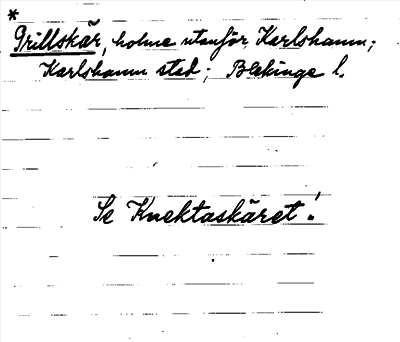 *
Grillskär, holme utanför Karlshamn;
Karlshamn stad; Blekinge l.
Se Knektaskäret!